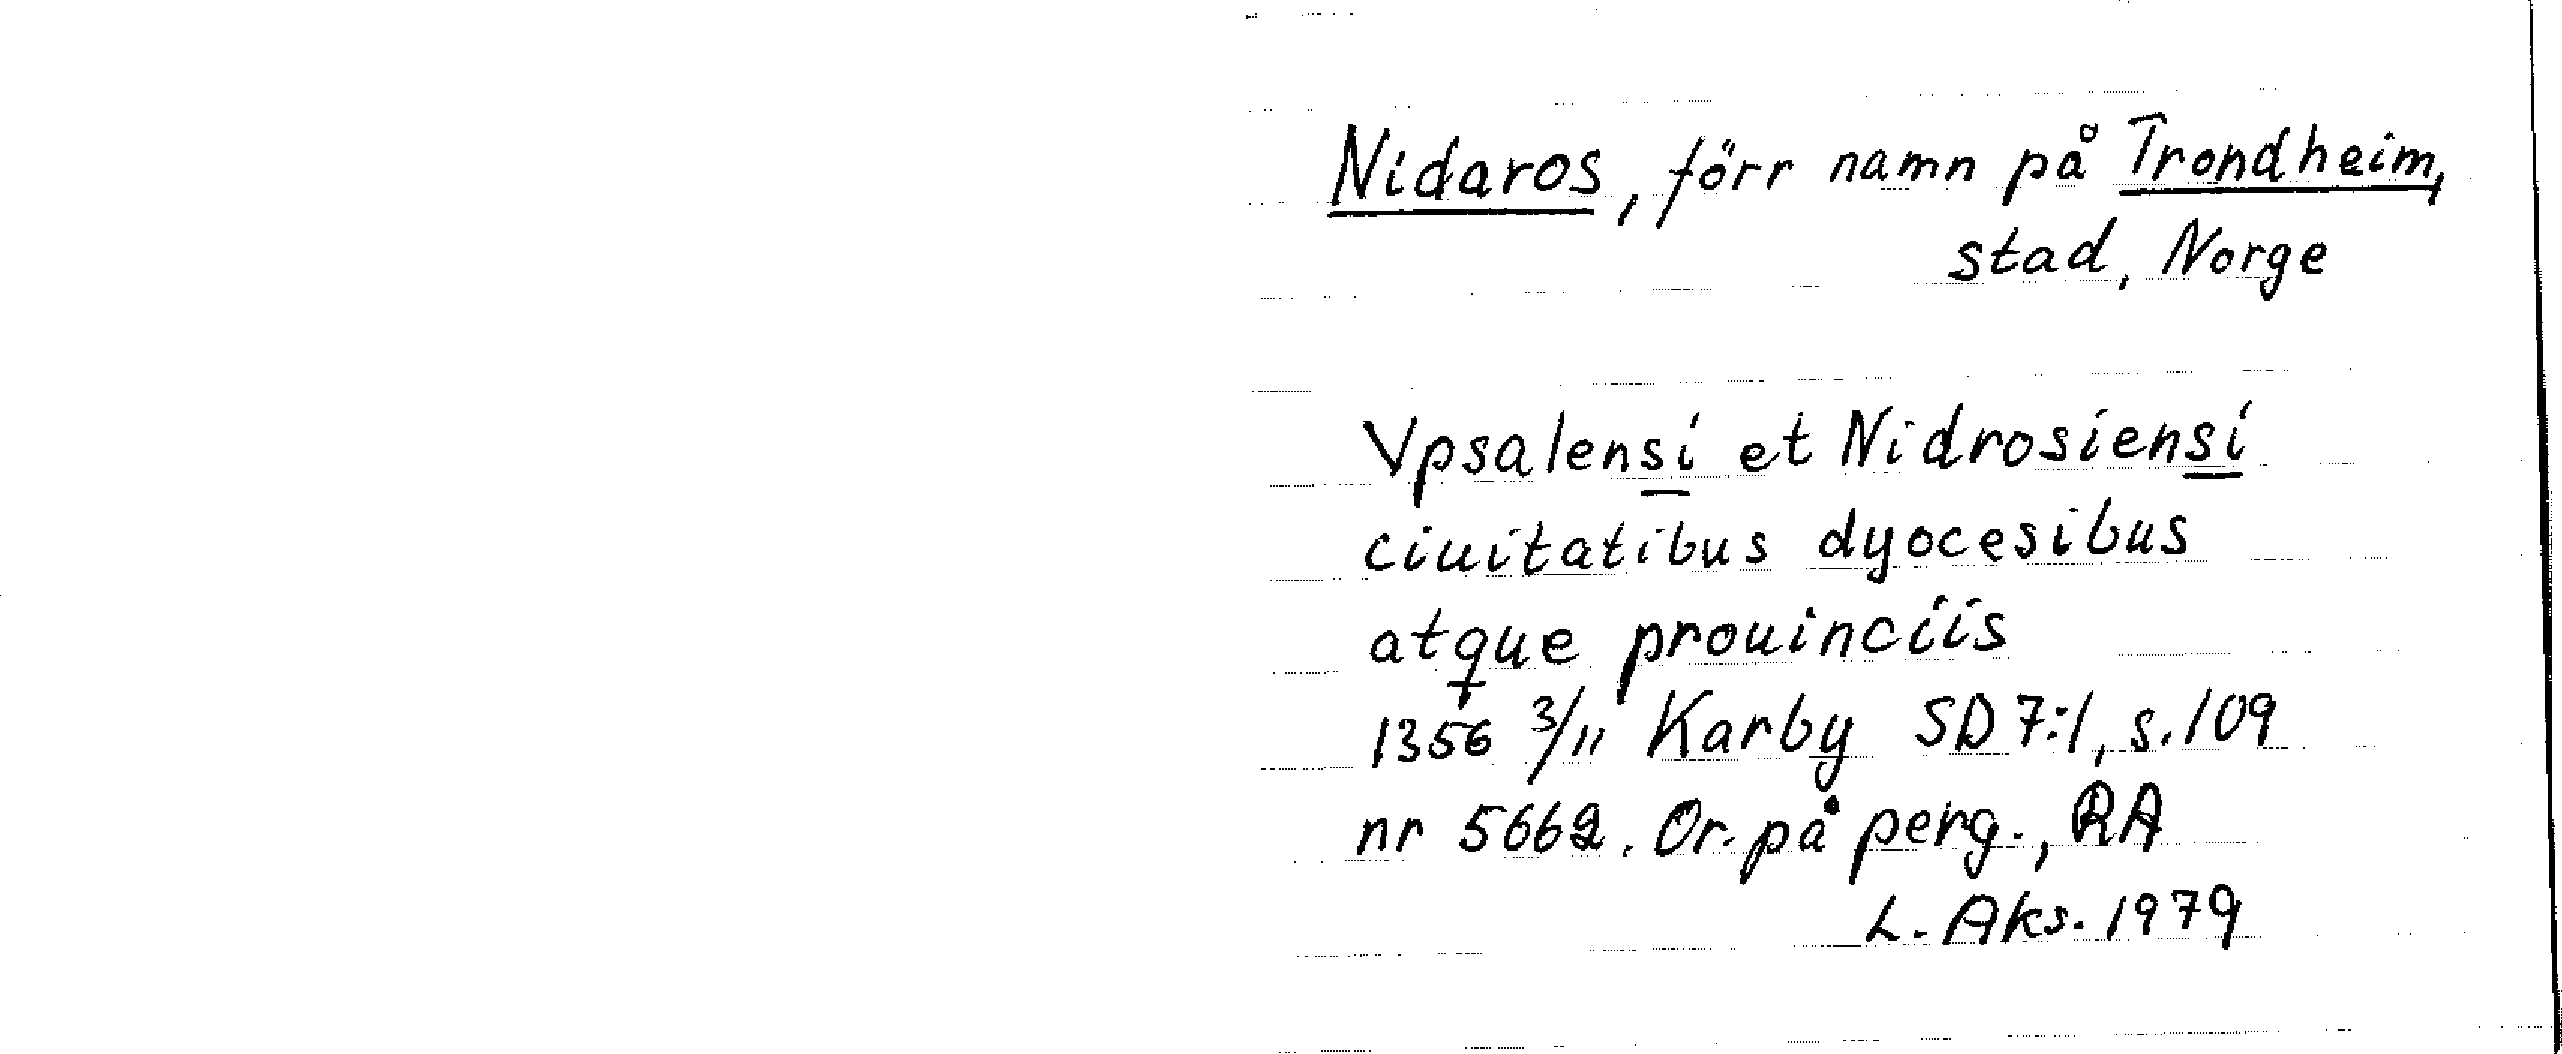 Nidaros, förr namn på Trondheim,
stad, Norge
Vpsalensi et Nidrosiensi
ciuitatibus dyocesibus
atque prouinciis
1356 3/11 Karby SD 7:1, s. 109
nr 5662. Or. på perg., RA
L. Aks. 1979